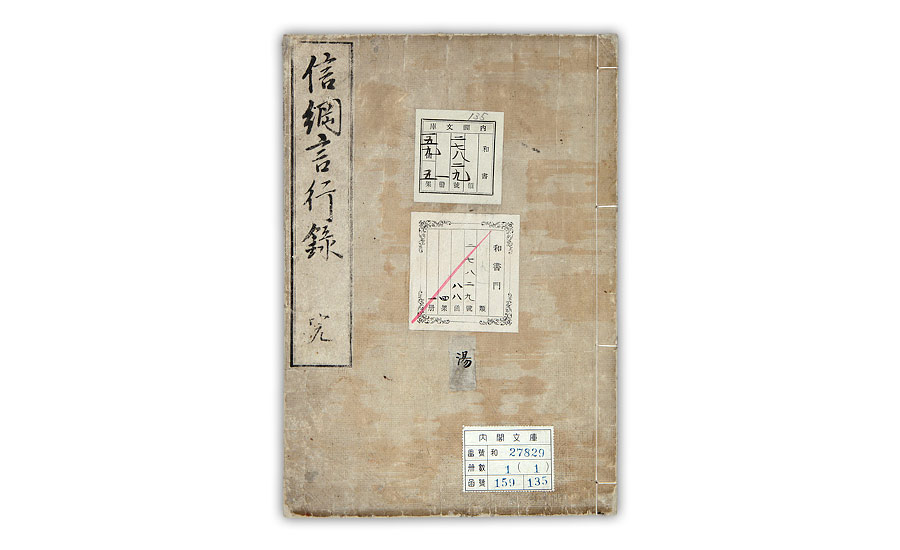 信綱言行錄 完
135
内閣文庫
和書
二七八二九號
一冊
五九函
五架
和書門
類
二七八二九號
八八函
四架
一冊
湯
内閣文庫
番號 和 27829
冊數 1(1)
函號 159 135